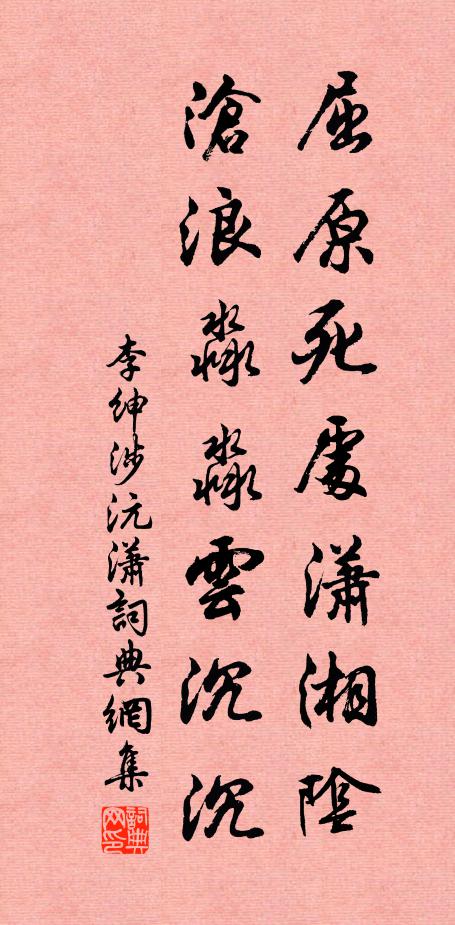 屈原死處瀟湘陰
滄浪淼淼雲沉沉
李紳涉沅瀟詞典網集
詞典网印